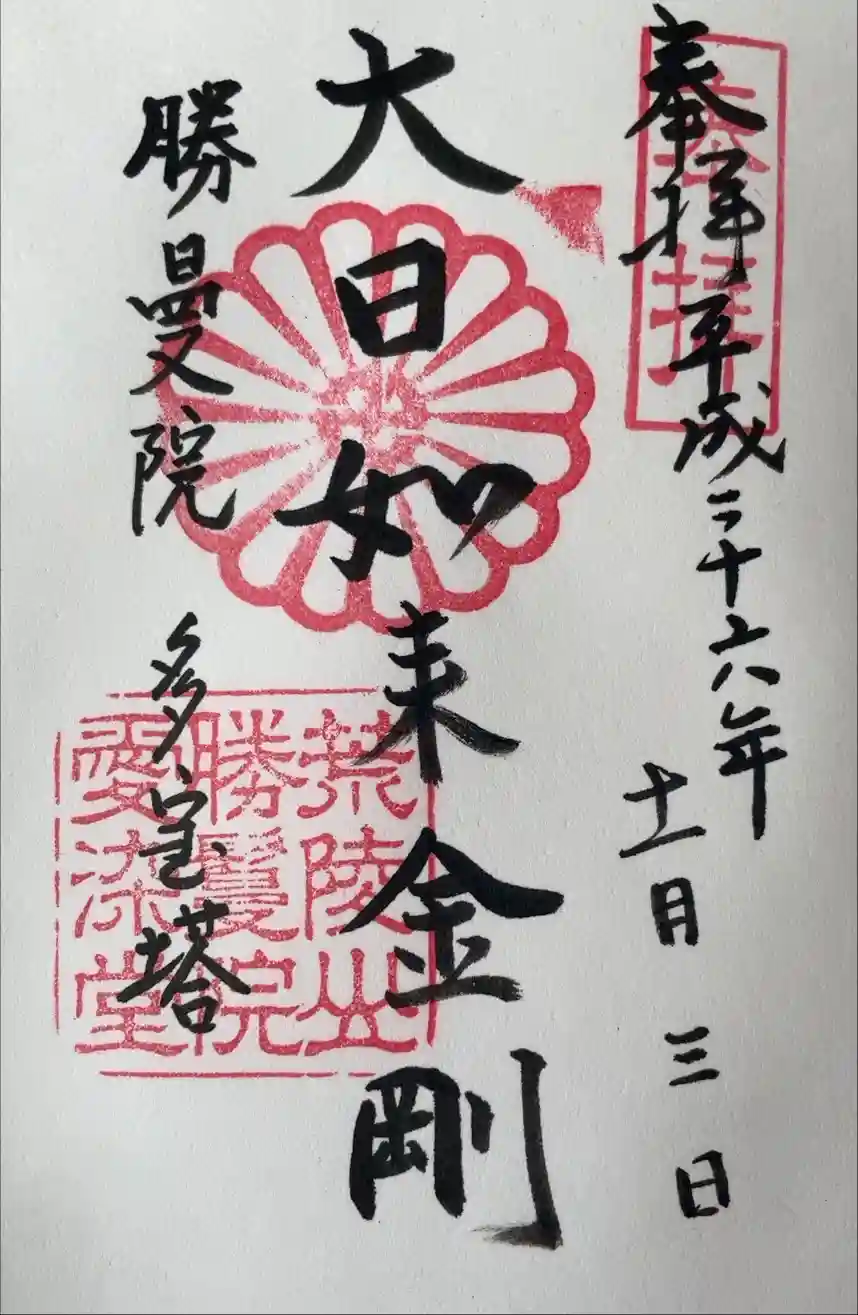 奉拝平成二十六年
十一月三日
奉拝
大日如来金剛
勝曼院 多宝塔
荒陵山
勝鬘院
愛染堂